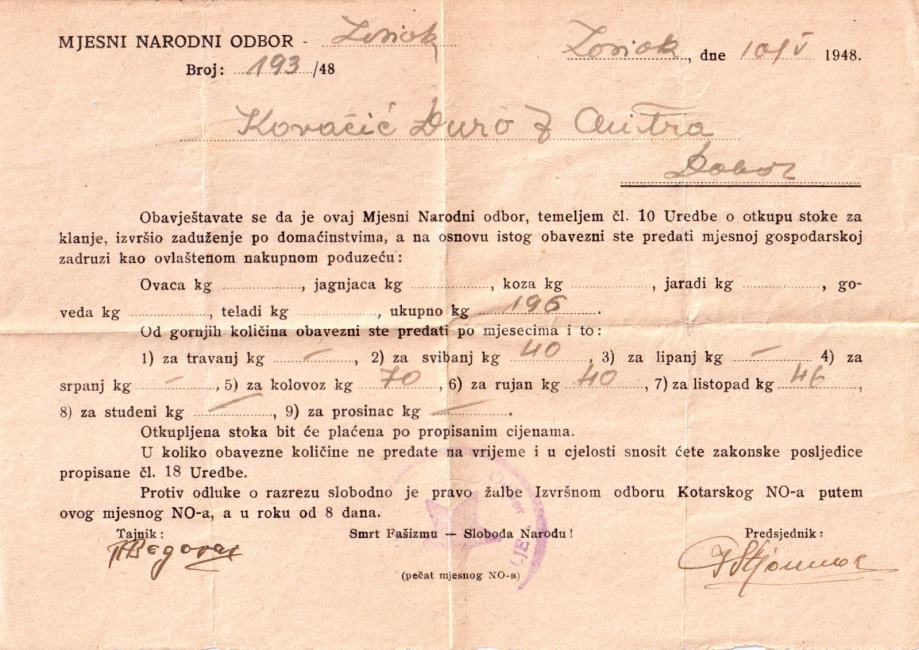 MJESNI NARODNI ODBOR -
Broj: 193 /48
, dne 10/V 1948.
Kovačić Đuro
Obavještavate se da je ovaj Mjesni Narodni odbor, temeljem čl. 10 Uredbe o otkupu stoke za
klanje, izvršio zaduženje po domaćinstvima, a na osnovu istog obavezni ste predati mjesnoj gospodarskoj
zadruzi kao ovlaštenom nakupnom poduzeću:
Ovaca kg , jagnjaca kg , koza kg , jaradi kg , go-
veda kg , teladi kg , ukupno kg 196 .
Od gornjih količina obavezni ste predati po mjesecima i to:
1) za travanj kg — , 2) za svibanj kg 40 , 3) za lipanj kg — 4) za
srpanj kg — , 5) za kolovoz kg 70 , 6) za rujan kg 40 , 7) za listopad kg 46 ,
8) za studeni kg — , 9) za prosinac kg — .
Otkupljena stoka bit će plaćena po propisanim cijenama.
U koliko obavezne količine ne predate na vrijeme i u cjelosti snosit ćete zakonske posljedice
propisane čl. 18 Uredbe.
Protiv odluke o razrezu slobodno je pravo žalbe Izvršnom odboru Kotarskog NO-a putem
ovog mjesnog NO-a, a u roku od 8 dana.
Tajnik: Smrt Fašizmu — Sloboda Narodu! Predsjednik:
(pečat mjesnog NO-a)